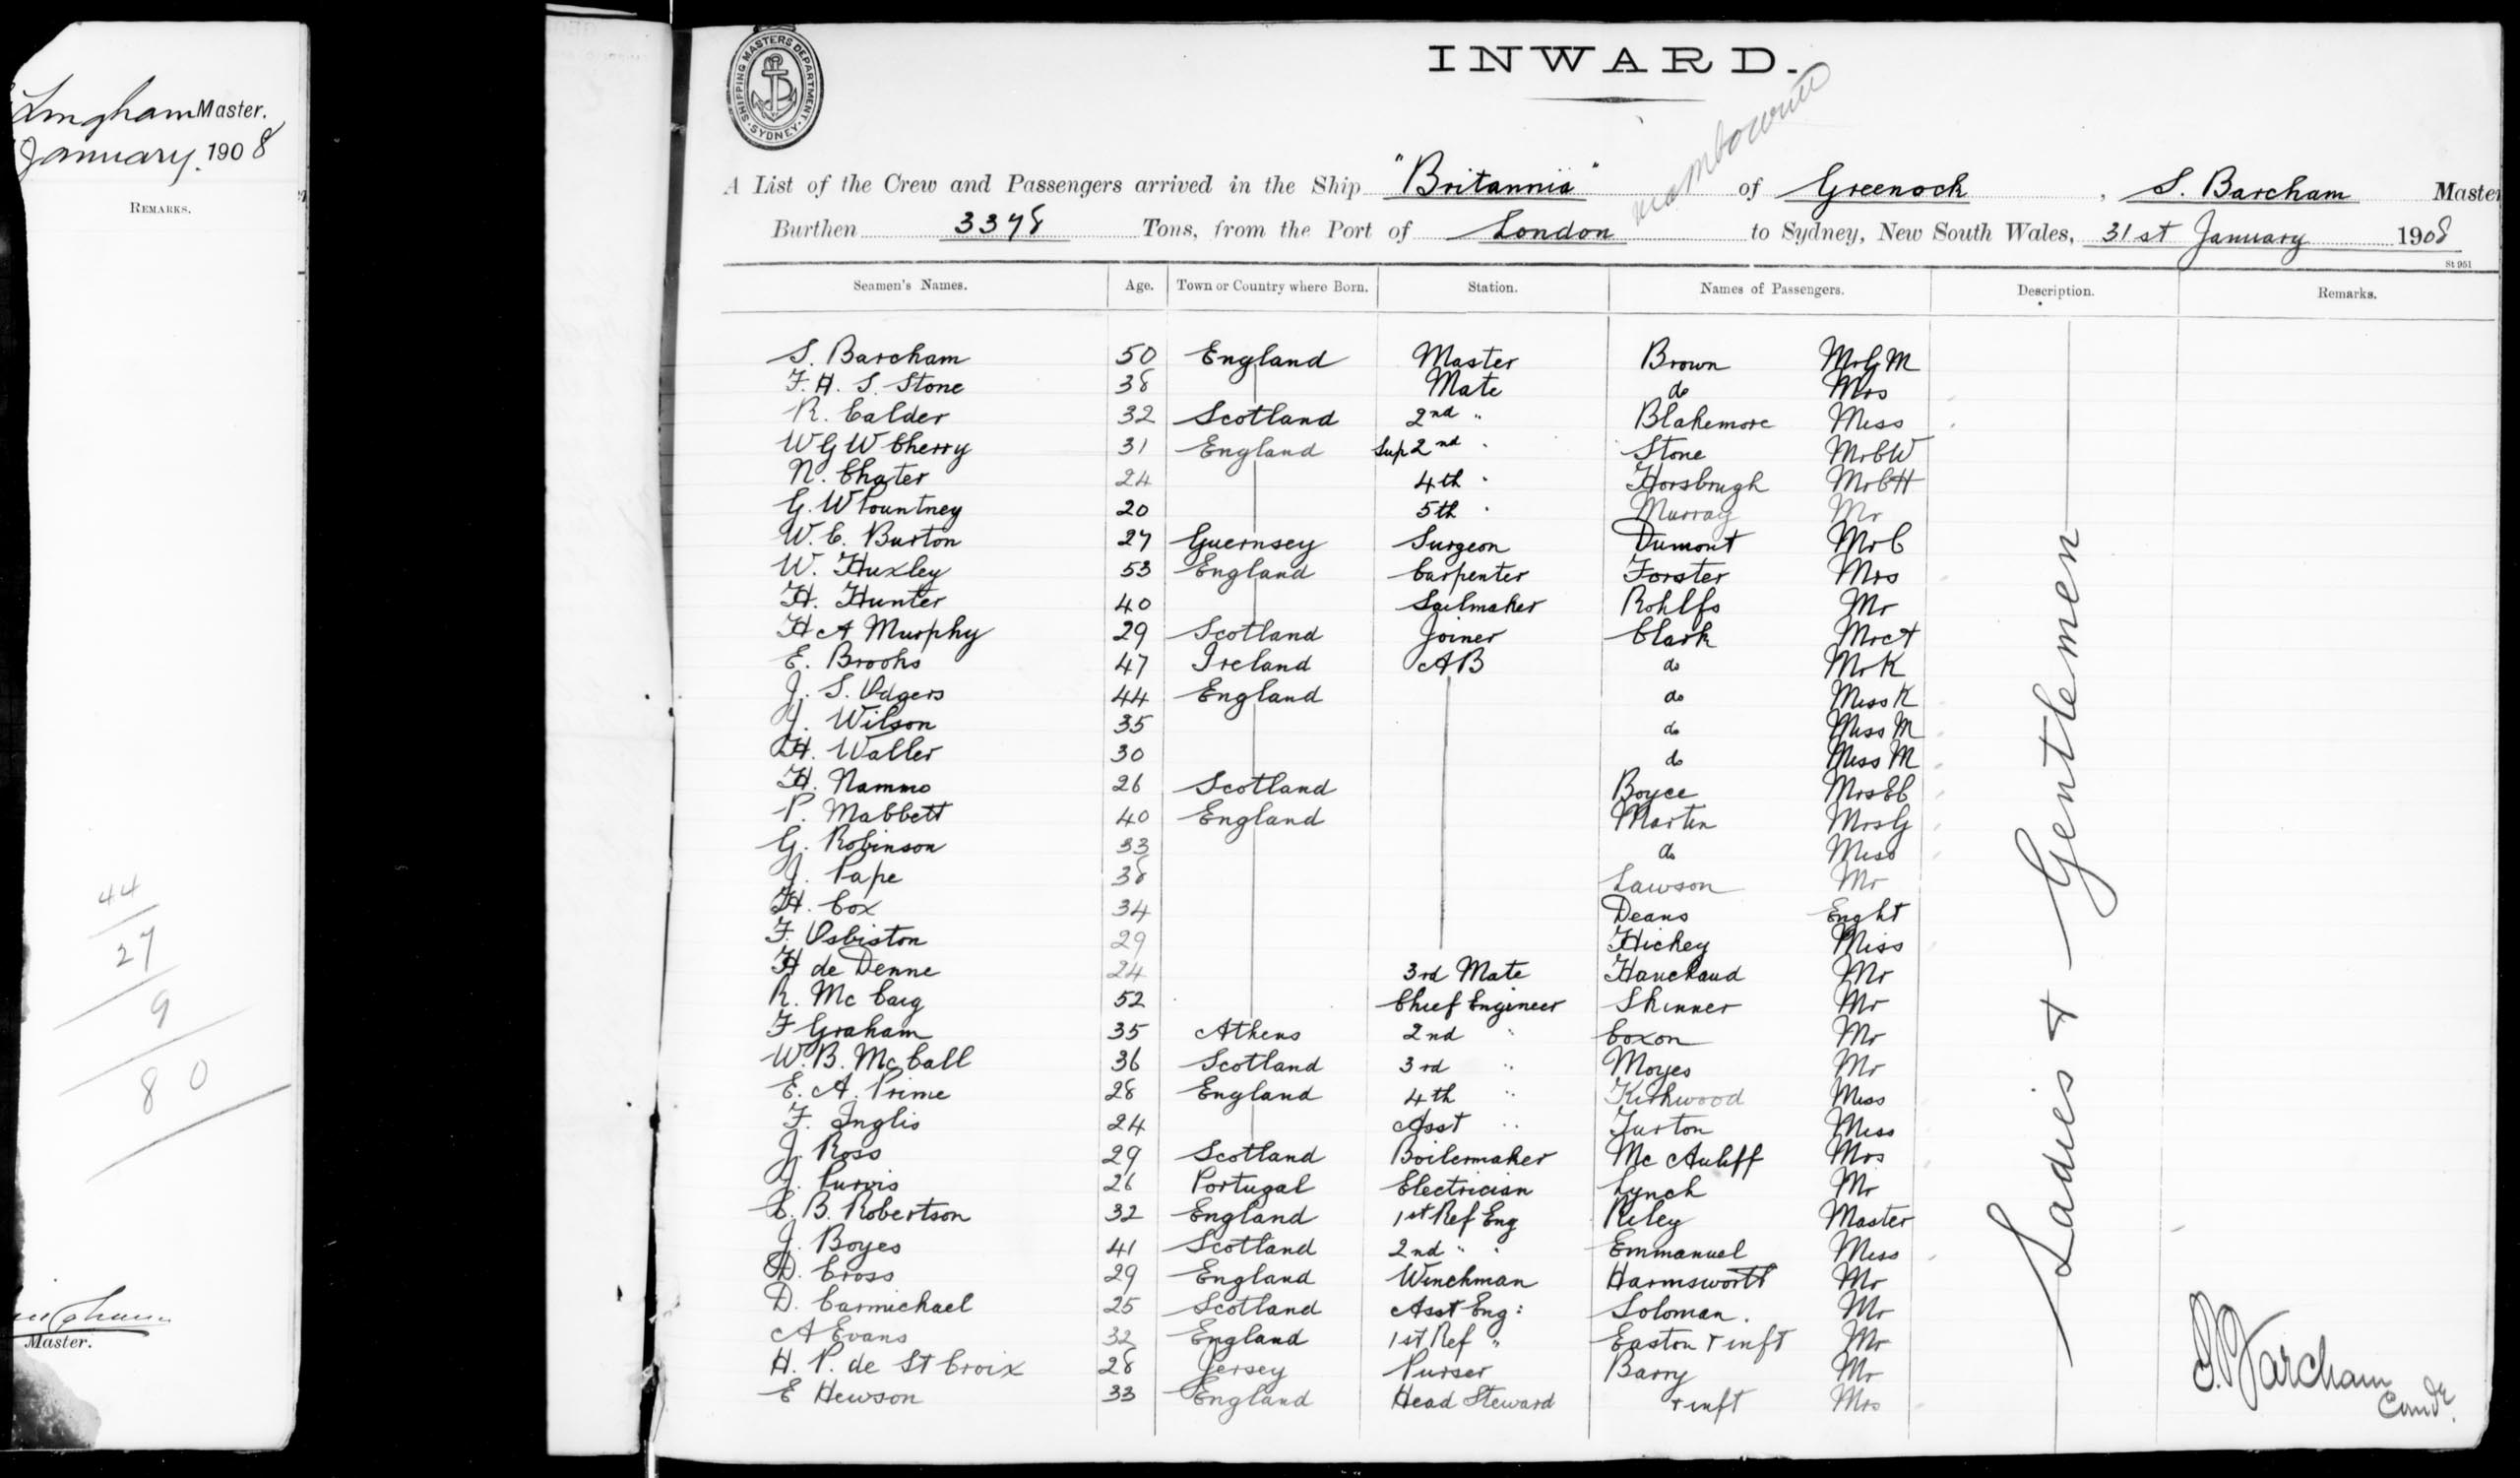 Master.
January 1908
REMARKS.
44
27
9
80
Master.
SHIPPING MASTERS DEPARTMENT
SYDNEY
INWARD.
A List of the Crew and Passengers arrived in the Ship "Britannia" of Greenock, S. Barcham Master
Burthen 3378 Tons, from the Port of London to Sydney, New South Wales, 31st January 1908
St 951
Seamen's Names. Age. Town or Country where Born. Station. Names of Passengers. Description. Remarks.
S. Barcham 50 England Master Brown Mr G M
F. H. S. Stone 38 Mate do Mrs
R. Calder 32 Scotland 2nd " Blakemore Miss
W G W Cherry 31 England Sup 2nd " Stone Mr C W
N. Chater 24 4th " Horsbrugh Mr C H
G. W Pountney 20 5th " Murray Mr
W. C. Burton 27 Guernsey Surgeon Dumont Mr C
W. Huxley 53 England Carpenter Forster Mrs
H. Hunter 40 Sailmaker Rohlfs Mr
H A Murphy 29 Scotland Joiner Clark Mr A
E. Brooks 47 Ireland AB do Mr K
J. S. Odgers 44 England do Miss K
J. Wilson 35 do Miss M
H. Waller 30 do Miss M
H. Nammo 26 Scotland Boyce Mrs E C
P. Mabbett 40 England Martin Mrs G
G. Robinson 33 do Miss
J. Pape 38 Lawson Mr
H. Cox 34 Deans Enght
F. Osbiston 29 Hickey Miss
H de Denne 24 3rd Mate Mr
R. Mc Caig 52 Chief Engineer Skinner Mr
F Graham 35 Athens 2nd " Coxon Mr
W. B. Mc Call 36 Scotland 3rd " Moyes Mr
E. A. Prime 28 England 4th " Kirkwood Miss
F. Inglis 24 Asst " Turton Miss
J. Ross 29 Scotland Boilermaker Mc Auliff Mrs
J. Purvis 26 Portugal Electrician Lynch Mr
C. B. Robertson 32 England 1st Ref Eng Riley Master
J. Boyes 41 Scotland 2nd " " Emmanuel Miss
D. Cross 29 England Winchman Harmsworth Mr
D. Carmichael 25 Scotland Asst Eng: Soloman. Mr
A Evans 32 England 1st Ref " Easton + inft Mr
H. P. de St Croix 28 Jersey Purser Barry Mr
E Hewson 33 England Head Steward + inft Mrs
Ladies & Gentlemen
S. Barcham
Comdr.